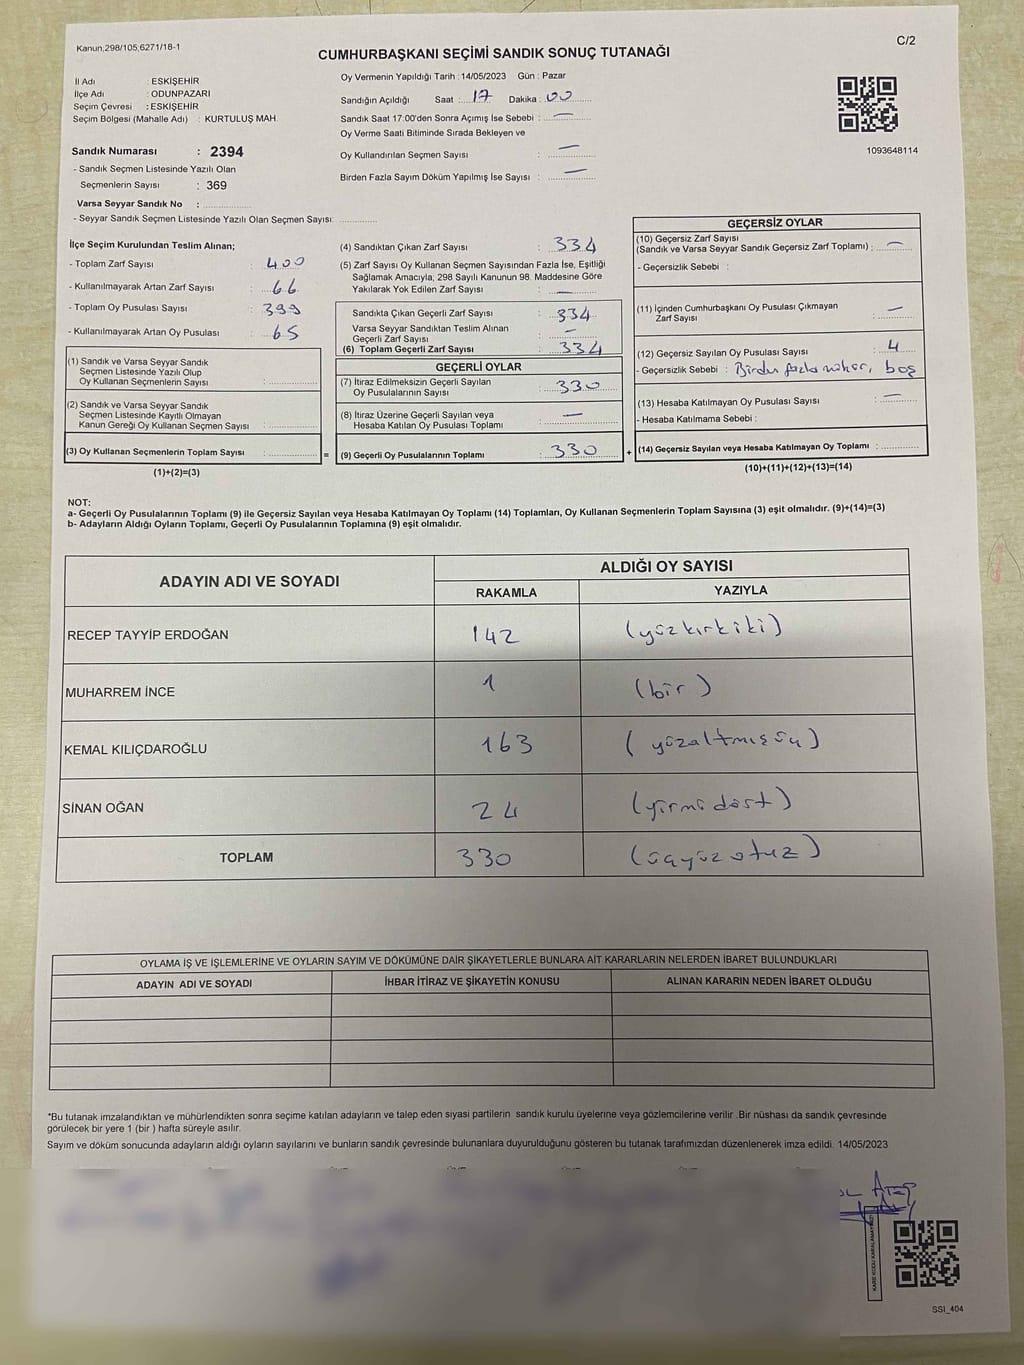 Kanun;298/105,6271/18-1
C/2
CUMHURBAŞKANI SEÇİMİ SANDIK SONUÇ TUTANAĞI
İl Adı : ESKİŞEHİR
İlçe Adı : ODUNPAZARI
Seçim Çevresi : ESKİŞEHİR
Seçim Bölgesi (Mahalle Adı) : KURTULUŞ MAH.
Sandık Numarası : 2394
- Sandık Seçmen Listesinde Yazılı Olan
Seçmenlerin Sayısı : 369
Varsa Seyyar Sandık No :
- Seyyar Sandık Seçmen Listesinde Yazılı Olan Seçmen Sayısı:
Oy Vermenin Yapıldığı Tarih : 14/05/2023 Gün : Pazar
Sandığın Açıldığı Saat : 17 Dakika : 00
Sandık Saat 17:00'den Sonra Açımış İse Sebebi : —
Oy Verme Saati Bitiminde Sırada Bekleyen ve
Oy Kullandırılan Seçmen Sayısı : —
Birden Fazla Sayım Döküm Yapılmış İse Sayısı : —
1093648114
İlçe Seçim Kurulundan Teslim Alınan;
- Toplam Zarf Sayısı : 400
- Kullanılmayarak Artan Zarf Sayısı : 66
- Toplam Oy Pusulası Sayısı : 399
- Kullanılmayarak Artan Oy Pusulası : 65
(1) Sandık ve Varsa Seyyar Sandık
Seçmen Listesinde Yazılı Olup
Oy Kullanan Seçmenlerin Sayısı :
(2) Sandık ve Varsa Seyyar Sandık
Seçmen Listesinde Kayıtlı Olmayan
Kanun Gereği Oy Kullanan Seçmen Sayısı :
(3) Oy Kullanan Seçmenlerin Toplam Sayısı : =
(1)+(2)=(3)
(4) Sandıktan Çıkan Zarf Sayısı : 334
(5) Zarf Sayısı Oy Kullanan Seçmen Sayısından Fazla İse, Eşitliği
Sağlamak Amacıyla; 298 Sayılı Kanunun 98. Maddesine Göre
Yakılarak Yok Edilen Zarf Sayısı : —
Sandıkta Çıkan Geçerli Zarf Sayısı : 334
Varsa Seyyar Sandıktan Teslim Alınan
Geçerli Zarf Sayısı : —
(6) Toplam Geçerli Zarf Sayısı : 334
GEÇERLİ OYLAR
(7) İtiraz Edilmeksizin Geçerli Sayılan
Oy Pusulalarının Sayısı : 330
(8) İtiraz Üzerine Geçerli Sayılan veya
Hesaba Katılan Oy Pusulası Toplamı : —
(9) Geçerli Oy Pusulalarının Toplamı : 330 +
GEÇERSİZ OYLAR
(10) Geçersiz Zarf Sayısı
(Sandık ve Varsa Seyyar Sandık Geçersiz Zarf Toplamı) : —
- Geçersizlik Sebebi :
(11) İçinden Cumhurbaşkanı Oy Pusulası Çıkmayan
Zarf Sayısı : —
(12) Geçersiz Sayılan Oy Pusulası Sayısı : 4
- Geçersizlik Sebebi : Birden fazla mühür, boş
(13) Hesaba Katılmayan Oy Pusulası Sayısı : —
- Hesaba Katılmama Sebebi :
(14) Geçersiz Sayılan veya Hesaba Katılmayan Oy Toplamı :
(10)+(11)+(12)+(13)=(14)
NOT:
a- Geçerli Oy Pusulalarının Toplamı (9) ile Geçersiz Sayılan veya Hesaba Katılmayan Oy Toplamı (14) Toplamları, Oy Kullanan Seçmenlerin Toplam Sayısına (3) eşit olmalıdır. (9)+(14)=(3)
b- Adayların Aldığı Oyların Toplamı, Geçerli Oy Pusulalarının Toplamına (9) eşit olmalıdır.
ADAYIN ADI VE SOYADI ALDIĞI OY SAYISI
RAKAMLA YAZIYLA
RECEP TAYYİP ERDOĞAN 142 (yüzkırkiki)
MUHARREM İNCE 1 (bir)
KEMAL KILIÇDAROĞLU 163 (yüzaltmışüç)
SİNAN OĞAN 24 (yirmidört)
TOPLAM 330 (üçyüzotuz)
OYLAMA İŞ VE İŞLEMLERİNE VE OYLARIN SAYIM VE DÖKÜMÜNE DAİR ŞİKAYETLERLE BUNLARA AİT KARARLARIN NELERDEN İBARET BULUNDUKLARI
ADAYIN ADI VE SOYADI İHBAR İTİRAZ VE ŞİKAYETİN KONUSU ALINAN KARARIN NEDEN İBARET OLDUĞU
*Bu tutanak imzalandıktan ve mühürlendikten sonra seçime katılan adayların ve talep eden siyasi partilerin sandık kurulu üyelerine veya gözlemcilerine verilir. Bir nüshası da sandık çevresinde
görülecek bir yere 1 (bir ) hafta süreyle asılır.
Sayım ve döküm sonucunda adayların aldığı oyların sayılarını ve bunların sandık çevresinde bulunanlara duyurulduğunu gösteren bu tutanak tarafımızdan düzenlenerek imza edildi. 14/05/2023
KARE KODU KARALAMAYINIZ!
SSI_404